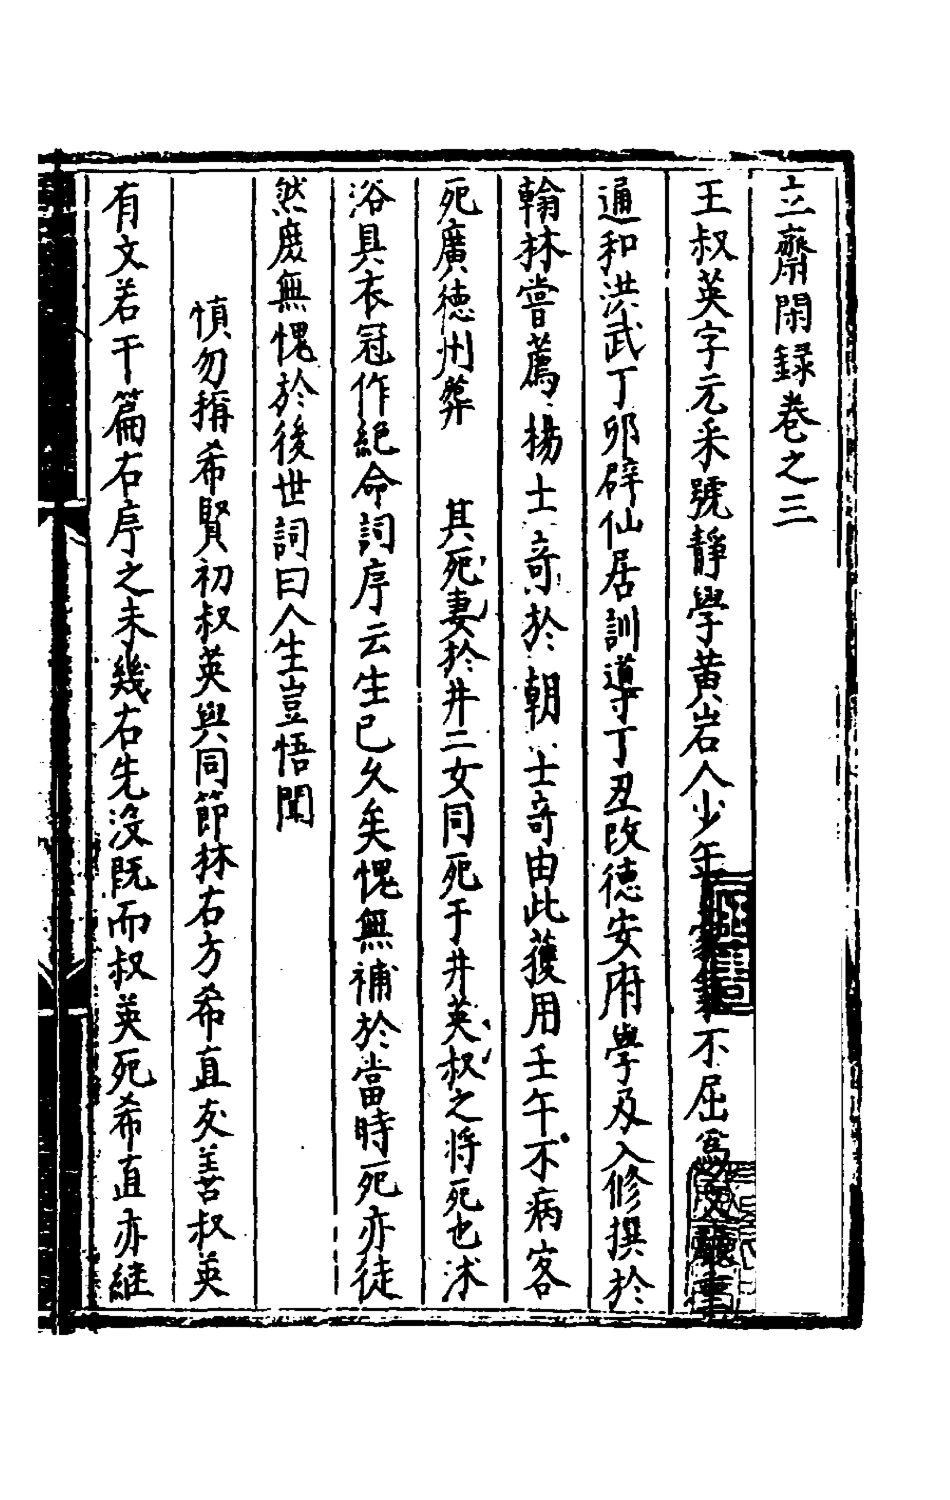 立齋閑録卷之三
王叔英字元采號靜學黄岩人少年不屈爲
通和洪武丁卯辟仙居訓導丁丑改德安府學及入修撰於
翰林嘗薦楊士竒於朝士竒由此獲用壬午不病客
死廣德州葬 其死妻於井二女同死于井英叔之将死也沐
浴具衣冠作絕命詞序云生已久矣愧無補於當時死亦徒
然庻無愧於後世詞曰人生豈悟聞
慎勿稱希賢初叔英與同節林右方希直友善叔英
有文若干篇右序之未幾右先没既而叔英死希直亦继